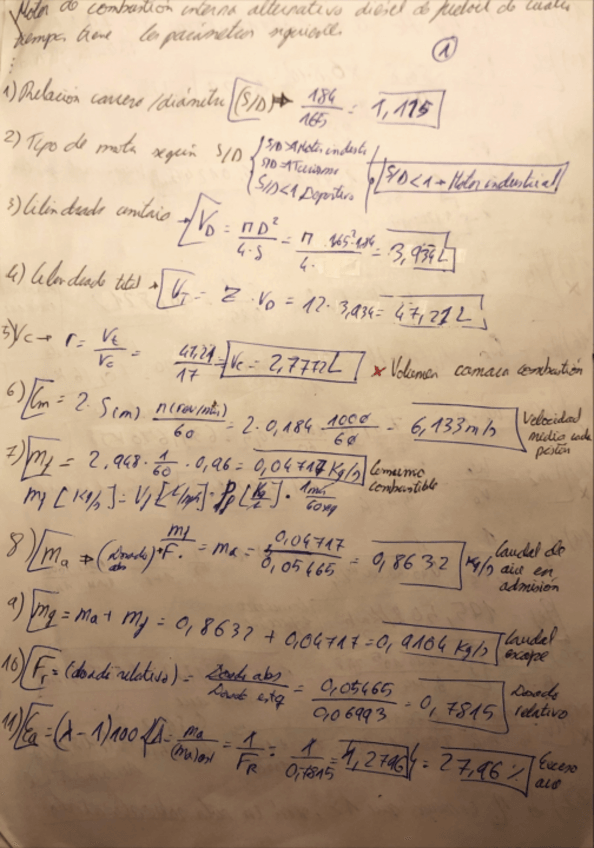 Motor de combustión interna alternativo diesel de fueloil de cuatro
tiempos tiene los parámetros siguientes
①
1) Relación carrera/diámetro (S/D) → 184/165 = 1,115
2) Tipo de motor según S/D { S/D>1 Motor industr. S/D=1 Turismo S/D<1 Deportivo | S/D<1 → Motor industrial
3) Cilindrada unitaria → V_D = πD²/4·S = π·165²·184/4· = 3,934L
4) Cilindrada total → V_T = Z·V_D = 12·3,934 = 47,21L
5) Vc → r = Vt/Vc = 47,21/17 = Vc = 2,7772L × Volumen camara combustión
6) Cm = 2·S(m) n(rev/min)/60 = 2·0,184·1000/60 = 6,133m/s Velocidad media cada pistón
7) mf = 2,948·1/60·0,96 = 0,04717 Kg/s Consumo combustible
mf [Kg/s] = Vf [L/min]·ρf [Kg/L]·1min/60seg
8) ma → (Dosado abs) F = mf/ = ma = 0,04717/0,05465 = 0,8632 Kg/s Caudal de aire en admisión
9) mg = ma + mf = 0,8632 + 0,04717 = 0,9104 Kg/s Caudal escape
10) Fr = (dosado relativo) = Dosado abs/Dosado esteq = 0,05465/0,06993 = 0,7815 Dosado relativo
11) Ea = (λ-1)100 λ = ma/(ma)est = 1/FR = 1/0,7815 = 1,2796 = 27,96 % Exceso aire